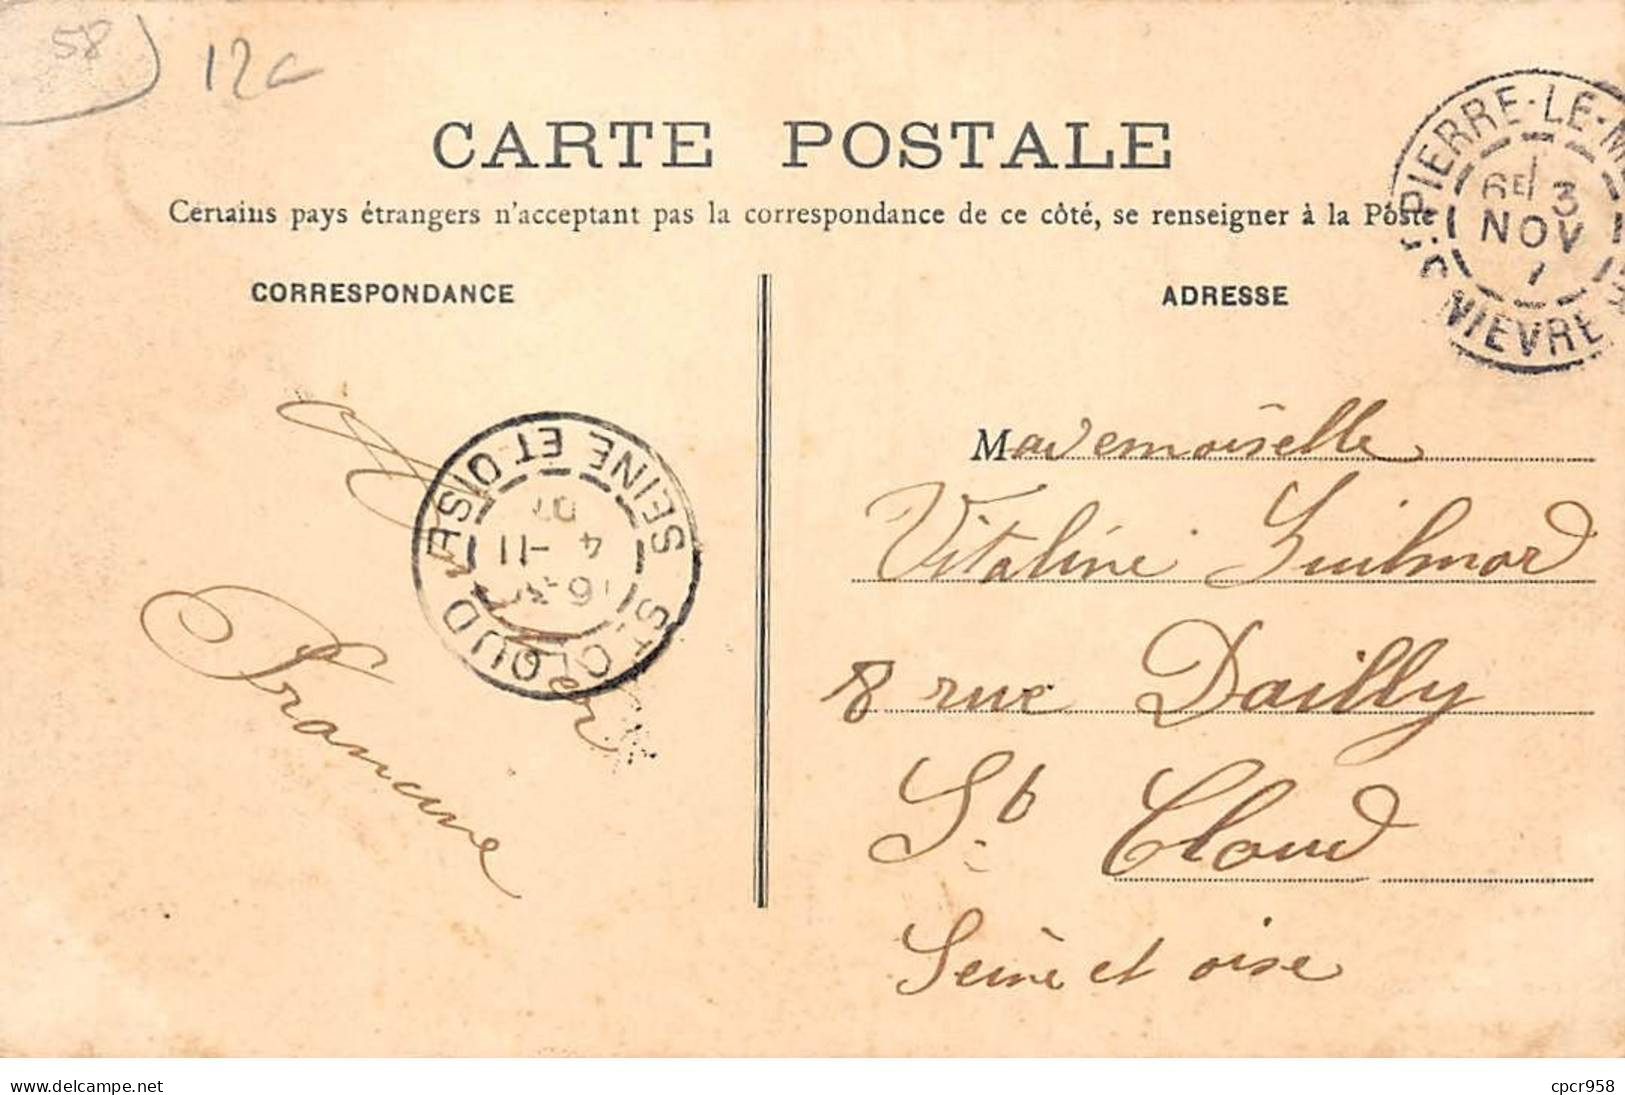 58
12c
CARTE POSTALE
Certains pays étrangers n'acceptant pas la correspondance de ce côté, se renseigner à la Poste
CORRESPONDANCE
ADRESSE
PIERRE-LE-M
6E 3
NOV
7
NIEVRE
ST CLOUD
SEINE ET OISE
4 -11
07
Mademoiselle
Vitaline Guilmard
8 rue Dailly
St Cloud
Seine et oise
Francine
www.delcampe.net
cpcr958